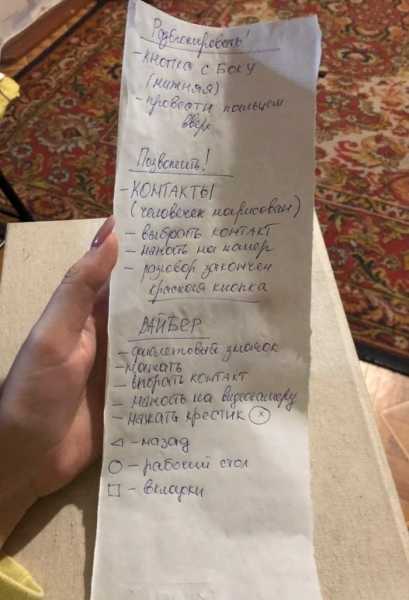 Разблокировать!
- КНОПКА С БОКУ
(нижняя)
- провести пальцем
вверх
Позвонить!
- КОНТАКТЫ
(человечек нарисован)
- выбрать контакт
- нажать на номер
- разговор закончен
красная кнопка
ВАЙБЕР
- фиолетовый значок
- нажать
- выбрать контакт
- нажать на видеокамеру
- нажать крестик ⓧ
◁ - назад
○ - рабочий стол
□ - вкладки